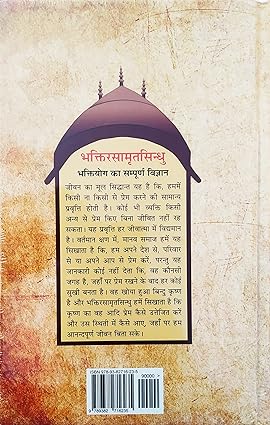 भक्तिरसामृतसिन्धु
भक्तियोग का सम्पूर्ण विज्ञान
जीवन का मूल सिद्धान्त यह है कि, हममें
किसी ना किसी से प्रेम करने की सामान्य
प्रवृत्ति होती है। कोई भी व्यक्ति किसी
अन्य से प्रेम किए बिना जीवित नहीं रह
सकता। यह प्रवृत्ति हर जीवात्मा में विद्यमान
है। वर्तमान क्षण में, मानव समाज हमें यह
सिखाता है कि, हम अपने देश से, परिवार
से या अपने आप से प्रेम करें, परन्तु यह
जानकारी कोई नहीं देता कि, वह कौनसी
जगह है, जहाँ पर प्रेम रखने के बाद हर कोई
सुखी बनता है। वह खोया हुआ बिन्दु कृष्ण
है और भक्तिरसामृतसिन्धु हमें सिखाता है कि
कृष्ण का वह आदि प्रेम कैसे उत्तेजित करें
और उस स्थिती में कैसे आए, जहाँ पर हम
आनन्दपूर्ण जीवन बिता सके।
90000